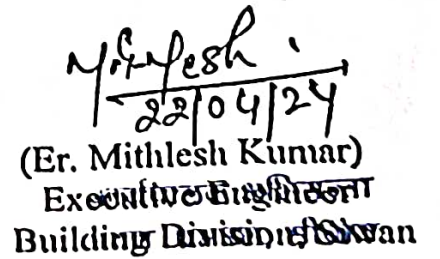 Mithlesh
22/04/24
(Er. Mithlesh Kumar)
Executive Engineer
Building Division, Siwan